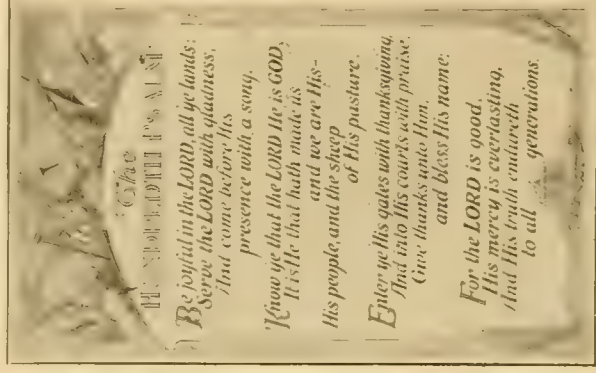 The
HUNDREDTH PSALM
Be joyful in the LORD, all ye lands:
Serve the LORD with gladness,
And come before His
presence with a song.
Know ye that the LORD He is GOD,
It is He that hath made us
and we are His-
His people, and the sheep
of His pasture.
Enter ye His gates with thanksgiving,
And into His courts with praise.
Give thanks unto Him,
and bless His name:
For the LORD is good,
His mercy is everlasting,
And His truth endureth
to all generations.